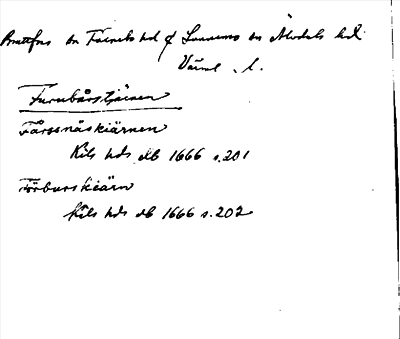 Brattfors sn Färnebo hd & Sunnemo sn Älvdals hd.
Värml. l.
Furubårstjärnen
Fårssnäskiärnen
Kils hds db 1666 s. 201
Förburskiärn
Kils hds db 1666 s. 202